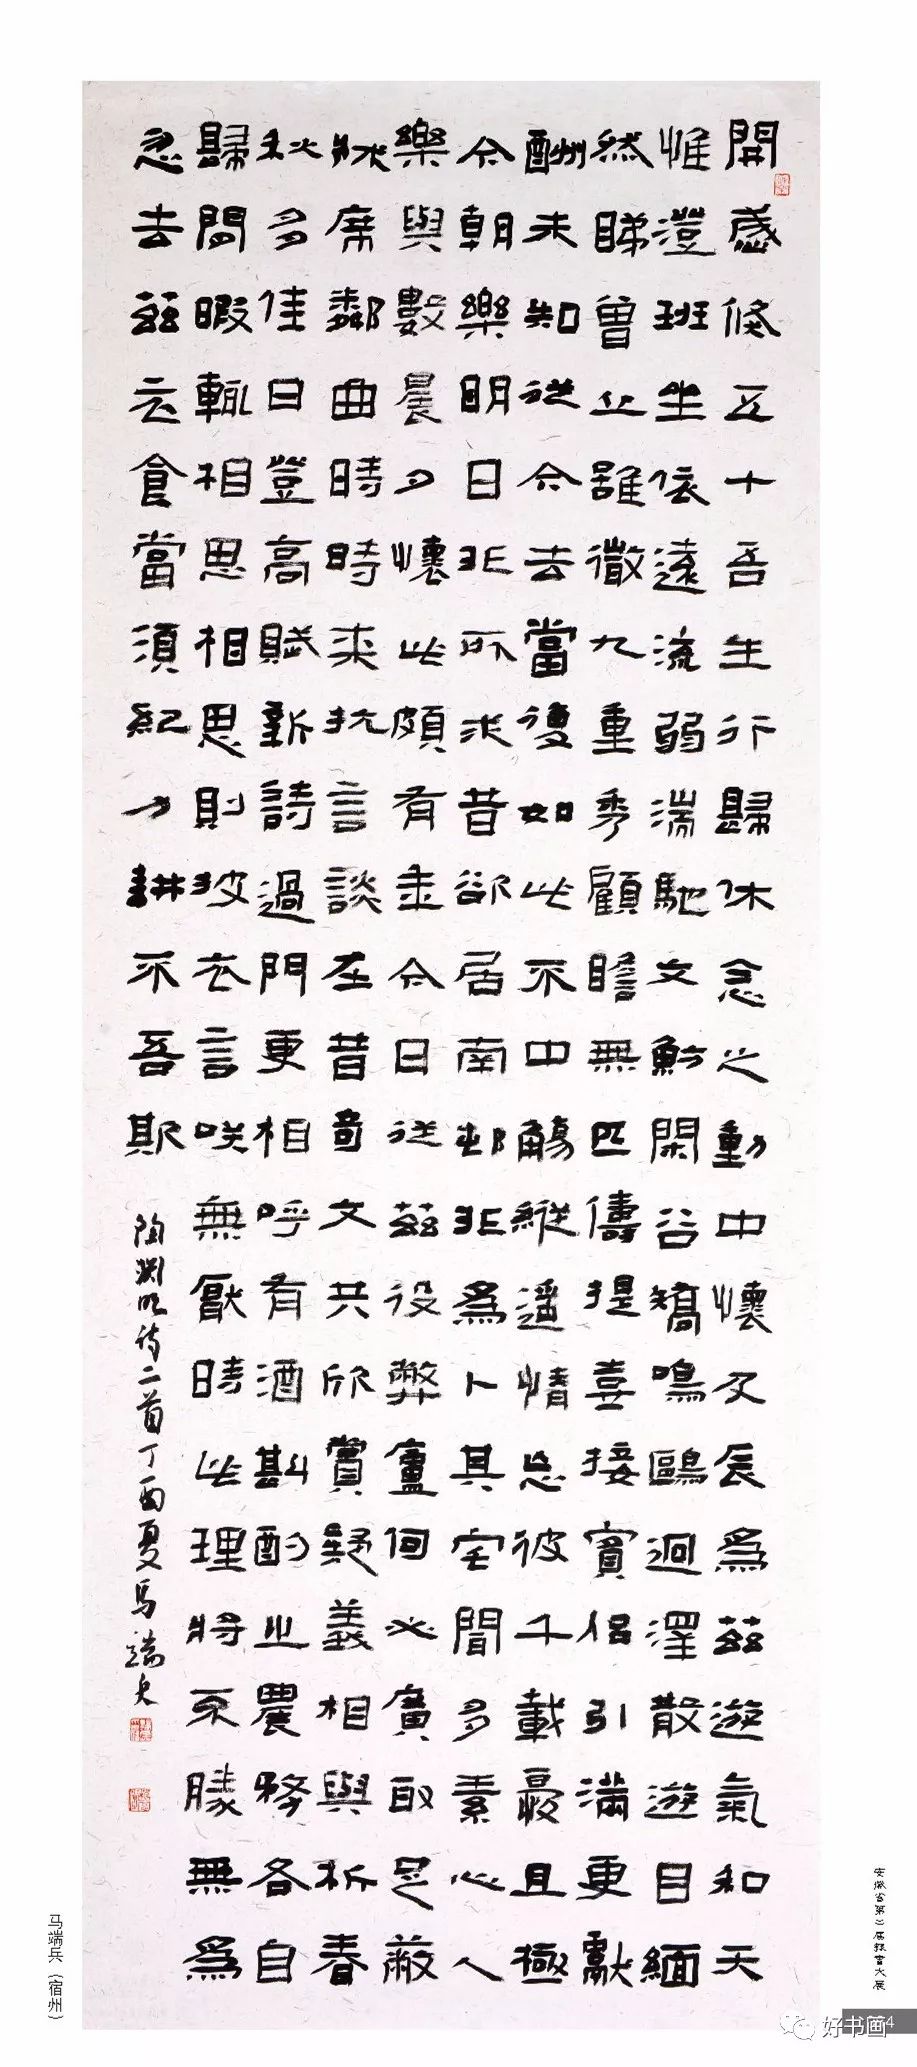 開歲倏五十吾生行歸休念之動中懷及辰為茲遊氣和天
惟澄班坐依遠流弱湍馳文魴閑谷矯鳴鷗迥澤散遊目緬
然睇曾丘雖微九重秀顧瞻無匹儔提壺接賓侶引滿更獻
酬未知從今去當復如此不中觴縱遥情忘彼千載憂且極
今朝樂明日非所求昔欲居南邨非為卜其宅聞多素心人
樂與數晨夕懷此頗有年今日從茲役弊廬何必廣取足蔽
牀席鄰曲時時来抗言談在昔奇文共欣賞疑義相與析春
秋多佳日登高賦新詩過門更相呼有酒斟酌之農務各自
歸閒暇輒相思相思則披衣言咲無厭時此理將不勝無為
忽去茲衣食當須紀力耕不吾欺
陶渊明诗二首丁酉夏马端兵
马端兵（宿州）
安徽省第三届隶书大展
好书画